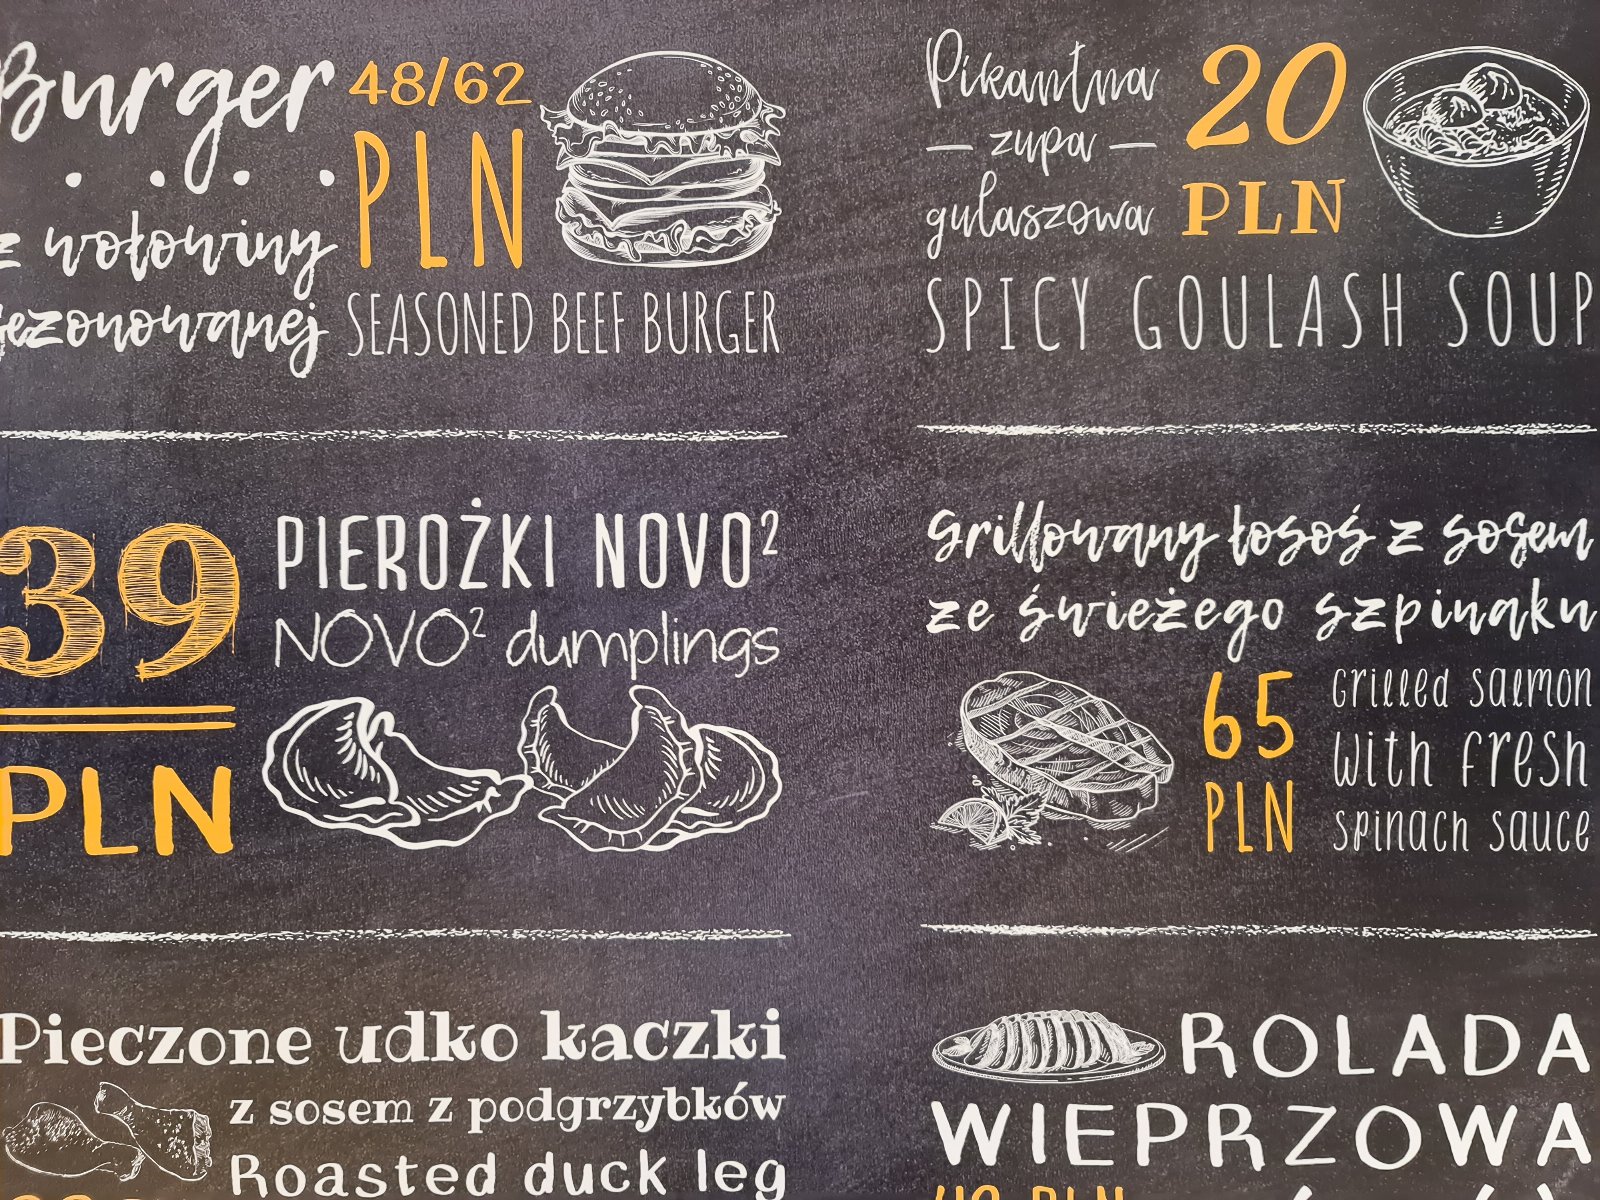 Burger
48/62
PLN
z wołowiny
sezonowanej
SEASONED BEEF BURGER
Pikantna
zupa
gulaszowa
20
PLN
SPICY GOULASH SOUP
39
PLN
PIEROŻKI NOVO²
NOVO² dumplings
Grillowany łosoś z sosem
ze świeżego szpinaku
65
PLN
Grilled salmon
with fresh
spinach sauce
Pieczone udko kaczki
z sosem z podgrzybków
Roasted duck leg
ROLADA
WIEPRZOWA
PLN